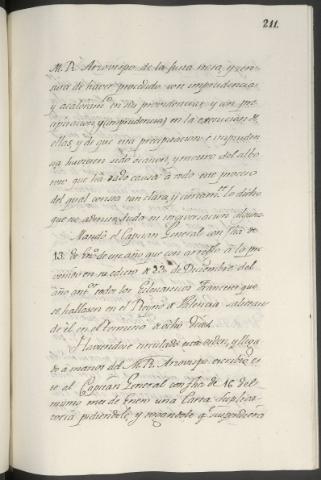 211.
M. R. Arzovispo de la funa nota, y cen-
sura de haver procedido con imprudencia,
y acaloramto. en sus providencias, y con pre-
cipitacion, y imprudencia en la execucion de
ellas, y de que esta precipitacion e impruden-
cia huviesen sido ocasion, y motivo del albo-
roto que ha dado causa à todo este proceso
del qual consta tan clara, y ciertamte. lo dicho
que no admite duda ni tergiversacion alguna.
Mandó el Capitan General con fha de
13. de Enº de un año que con arreglo à lo pre-
venido en su edicto de 23. de Diciembre del
año antr. todos los Eclesiasticos Franceses que
se hallasen en el Reyno de Valencia saliesen
de él en el termino de ocho Dias.
Haviendose circulado esta orden, y llega-
do à manos del M. R. Arzovispo escribió es-
te al Capitan General con fha de 16. del
mismo mes de Enero una Carta suplica-
toria pidiendole, y rogandole qe. suspendiera